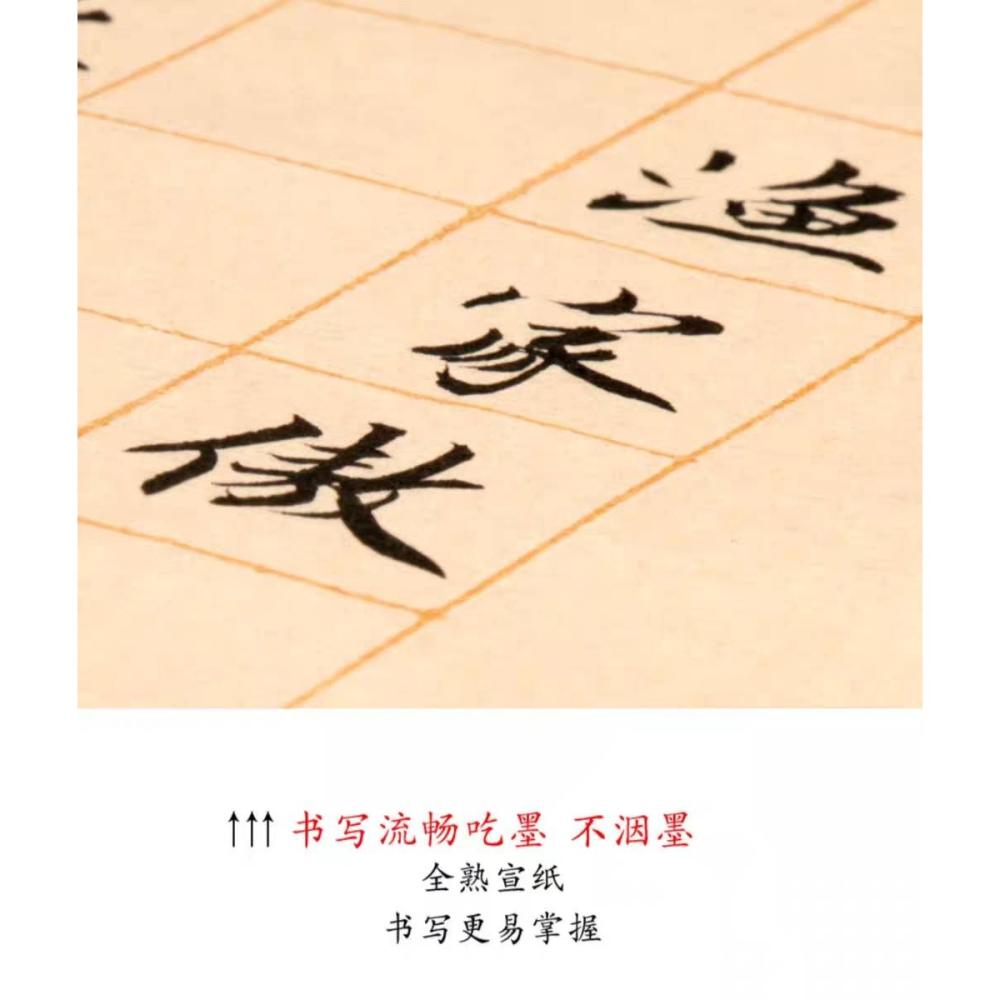 渔家傲
↑↑↑ 书写流畅吃墨 不洇墨
全熟宣纸
书写更易掌握